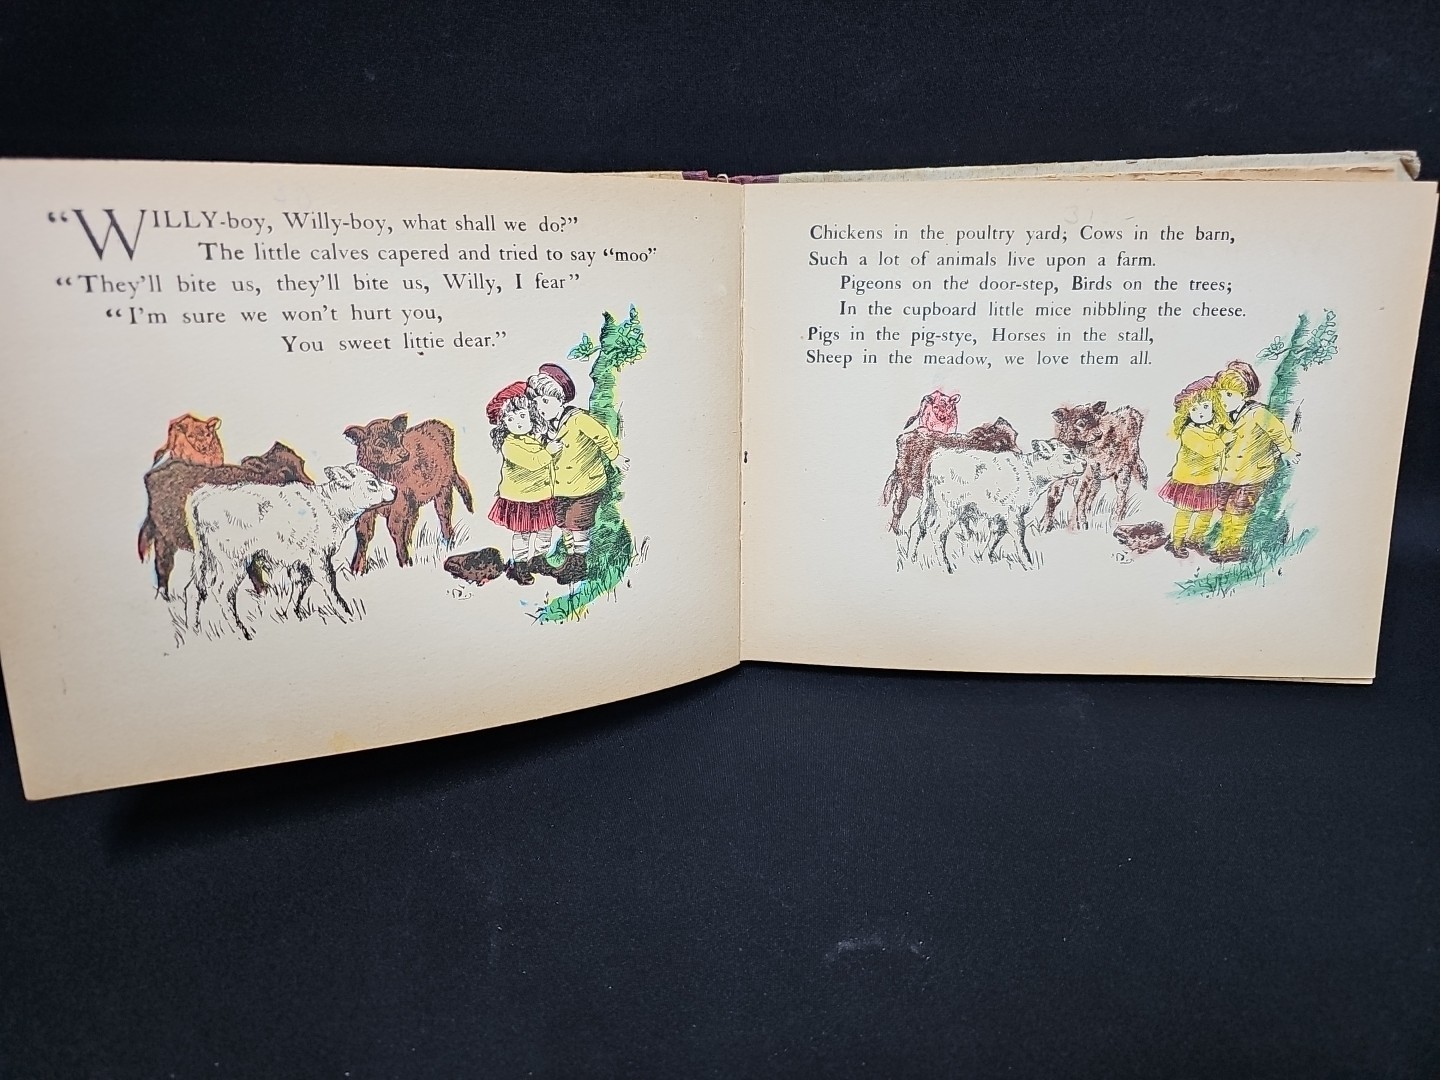 “WILLY-boy, Willy-boy, what shall we do?”
The little calves capered and tried to say “moo”
“They'll bite us, they'll bite us, Willy, I fear”
“I'm sure we won't hurt you,
You sweet little dear.”
Chickens in the poultry yard; Cows in the barn,
Such a lot of animals live upon a farm.
Pigeons on the door-step, Birds on the trees;
In the cupboard little mice nibbling the cheese.
Pigs in the pig-stye, Horses in the stall,
Sheep in the meadow, we love them all.